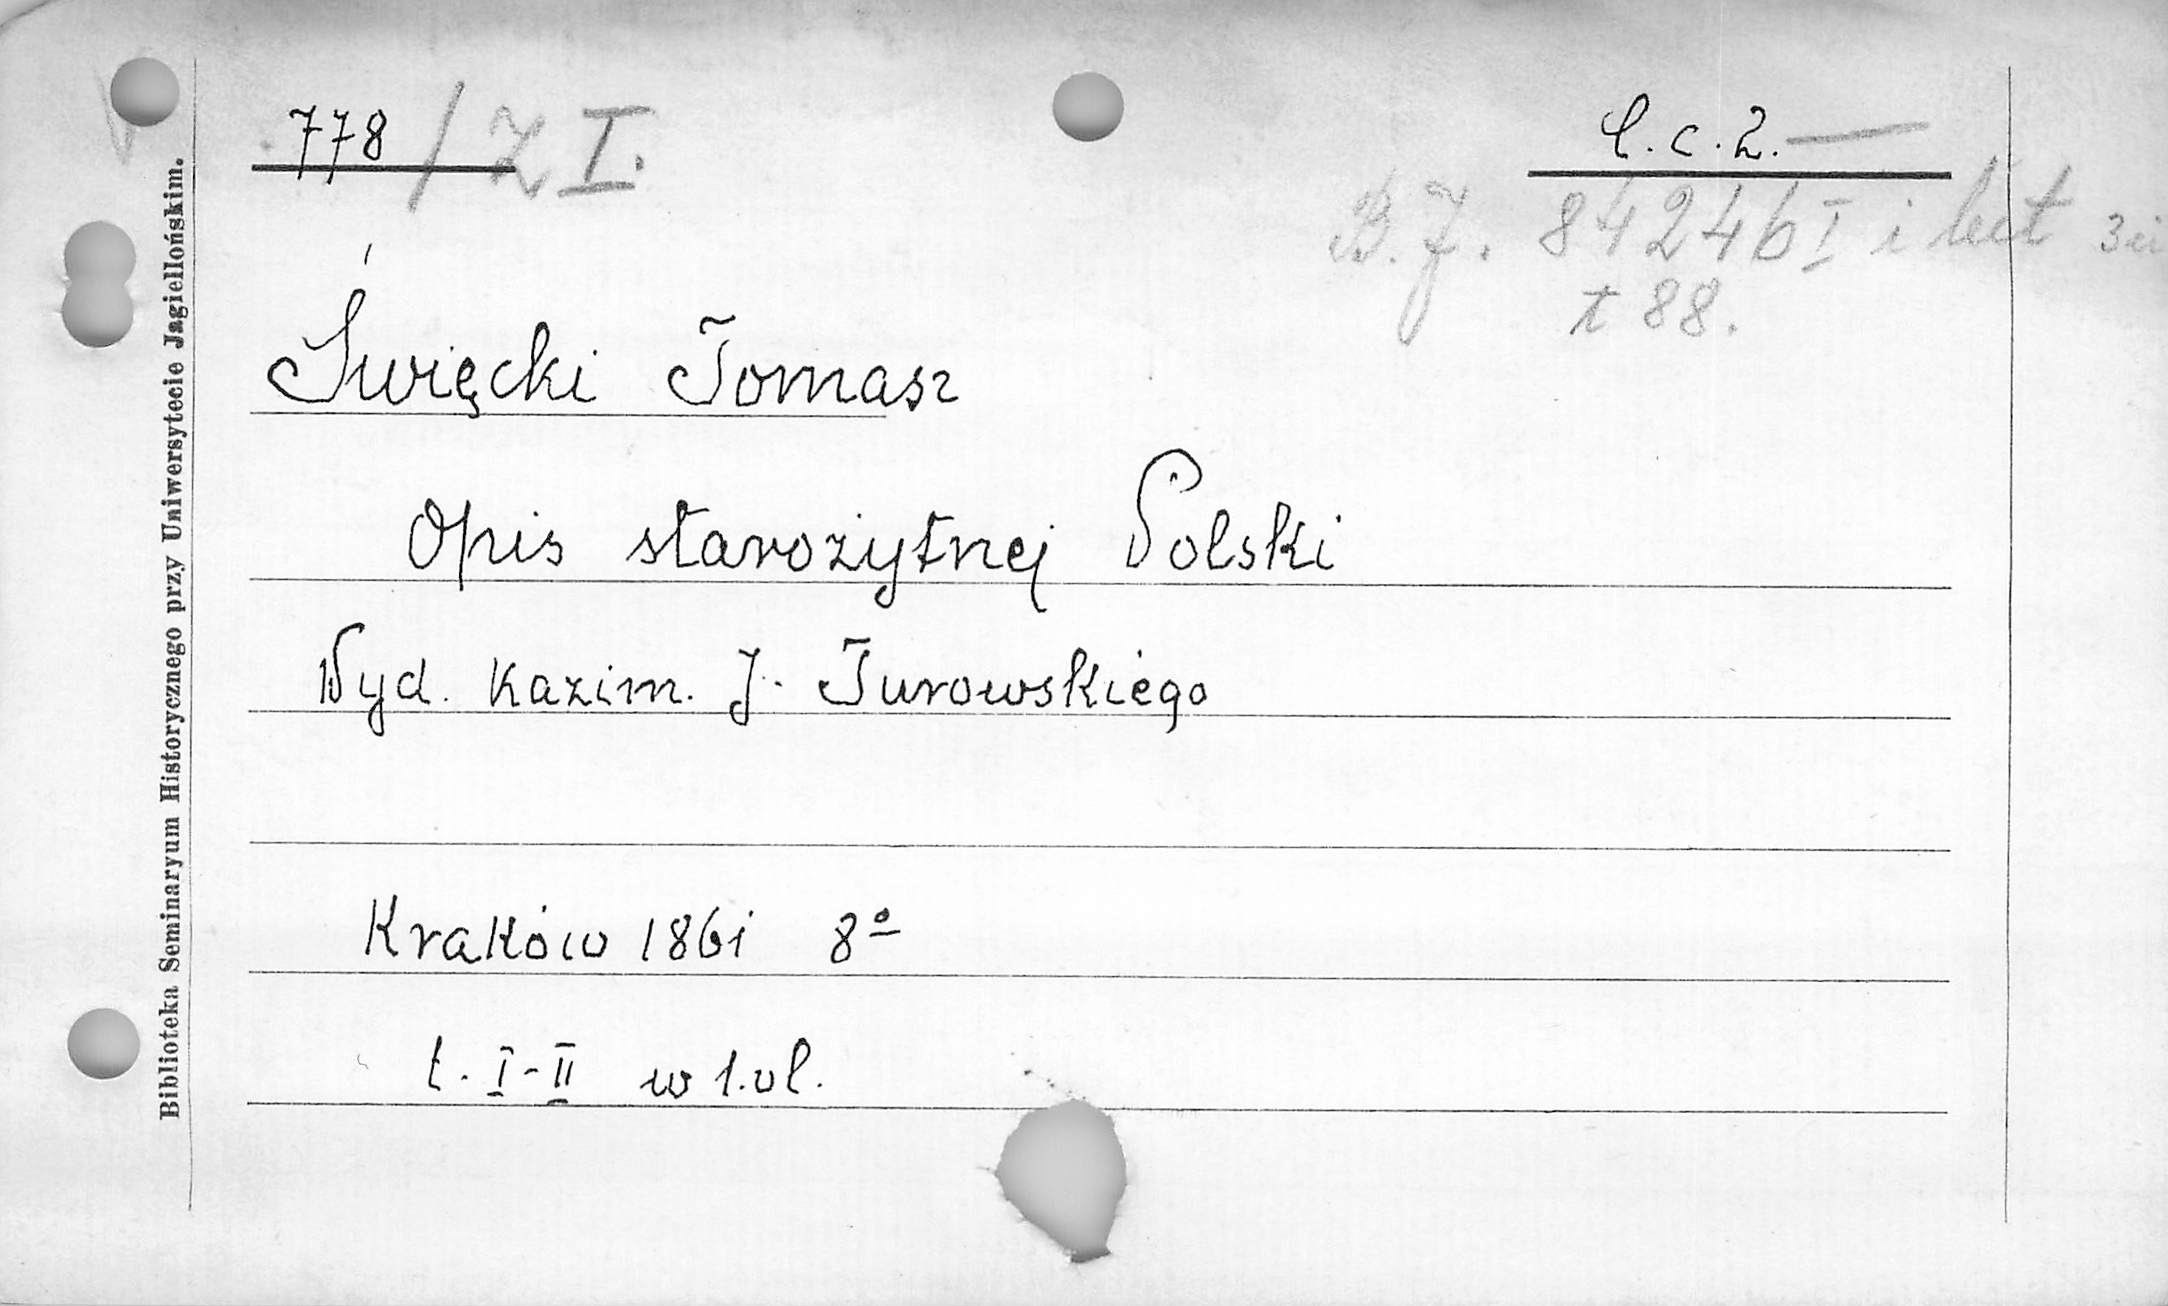 778 / Z I.
C. c. 2. —
B. J. 84246 I i
t 88.
Święcki Tomasz
Opis starożytnej Polski
Wyd. Kazim. J. Turowskiego
Kraków 1861 8º
t. I-II w 1. vl.
Biblioteka Seminaryum Historycznego przy Uniwersytecie Jagiellońskim.